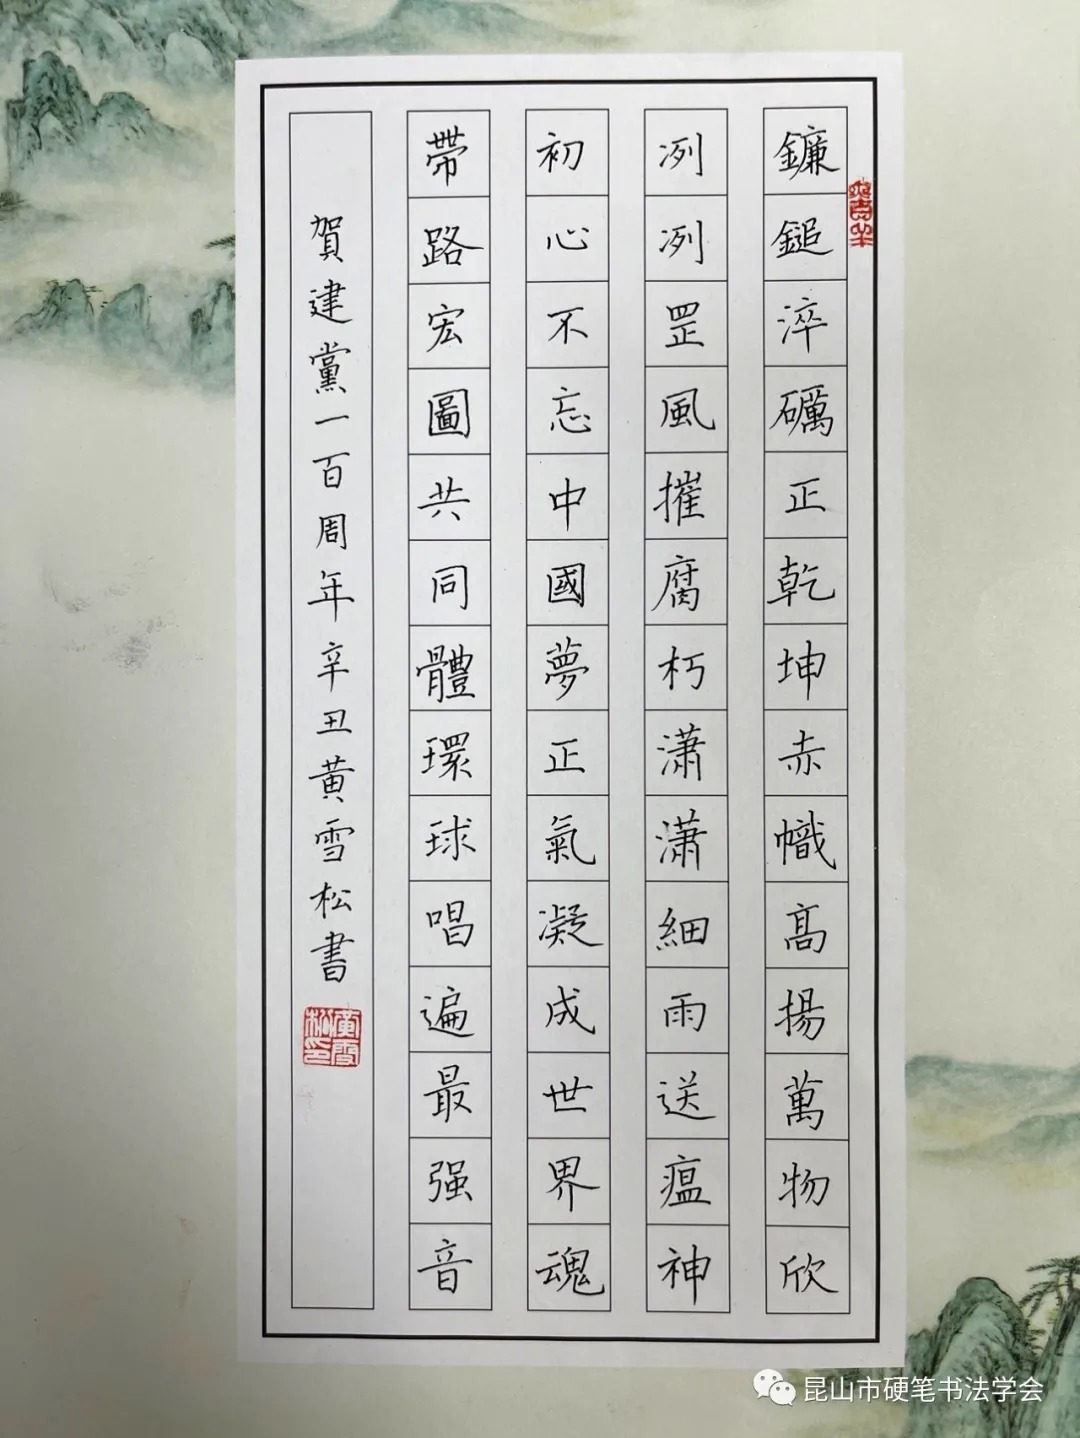 鐮鎚淬礪正乾坤赤幟高揚萬物欣
冽冽罡風摧腐朽潇潇細雨送瘟神
初心不忘中國夢正氣凝成世界魂
帶路宏圖共同體環球唱遍最强音
賀建黨一百周年辛丑黄雪松書
黄雪松印
昆山市硬笔书法学会